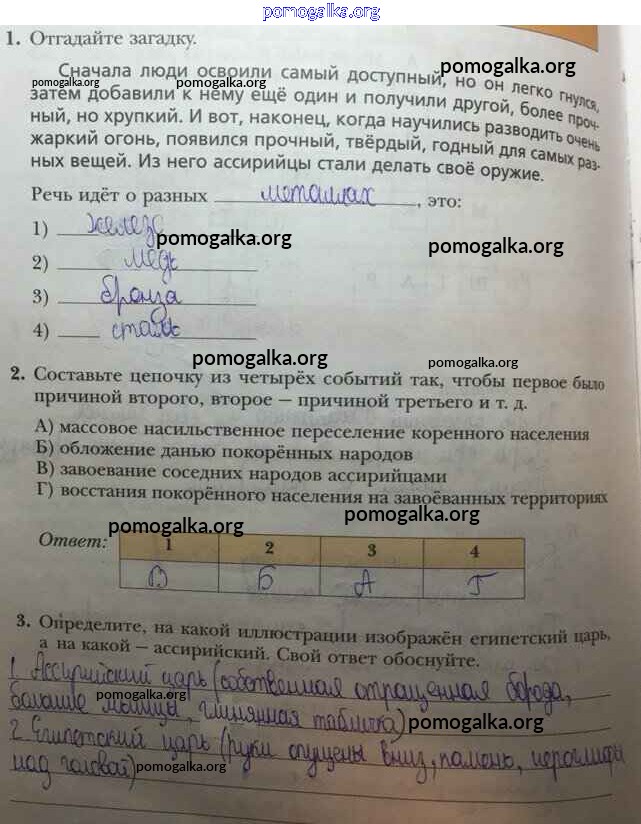 pomogalka.org
1. Отгадайте загадку.
Сначала люди освоили самый доступный, но он легко гнулся,
pomogalka.org
pomogalka.org
pomogalka.org
затем добавили к нему ещё один и получили другой, более проч-
ный, но хрупкий. И вот, наконец, когда научились разводить очень
жаркий огонь, появился прочный, твёрдый, годный для самых раз-
ных вещей. Из него ассирийцы стали делать своё оружие.
Речь идёт о разных металлах, это:
1) железо
pomogalka.org
pomogalka.org
2) медь
3) бронза
4) сталь
pomogalka.org
pomogalka.org
2. Составьте цепочку из четырёх событий так, чтобы первое было
причиной второго, второе — причиной третьего и т. д.
А) массовое насильственное переселение коренного населения
Б) обложение данью покорённых народов
В) завоевание соседних народов ассирийцами
Г) восстания покорённого населения на завоёванных территориях
pomogalka.org
pomogalka.org
Ответ: 1 2 3 4
В Б А Г
3. Определите, на какой иллюстрации изображён египетский царь,
а на какой — ассирийский. Свой ответ обоснуйте.
1 Ассирийский царь (собственная отращенная борода,
pomogalka.org
большие мышцы, глинянная табличка)
pomogalka.org
2 Египетский царь (руки опущены вниз, иероглифы
над головой)
pomogalka.org